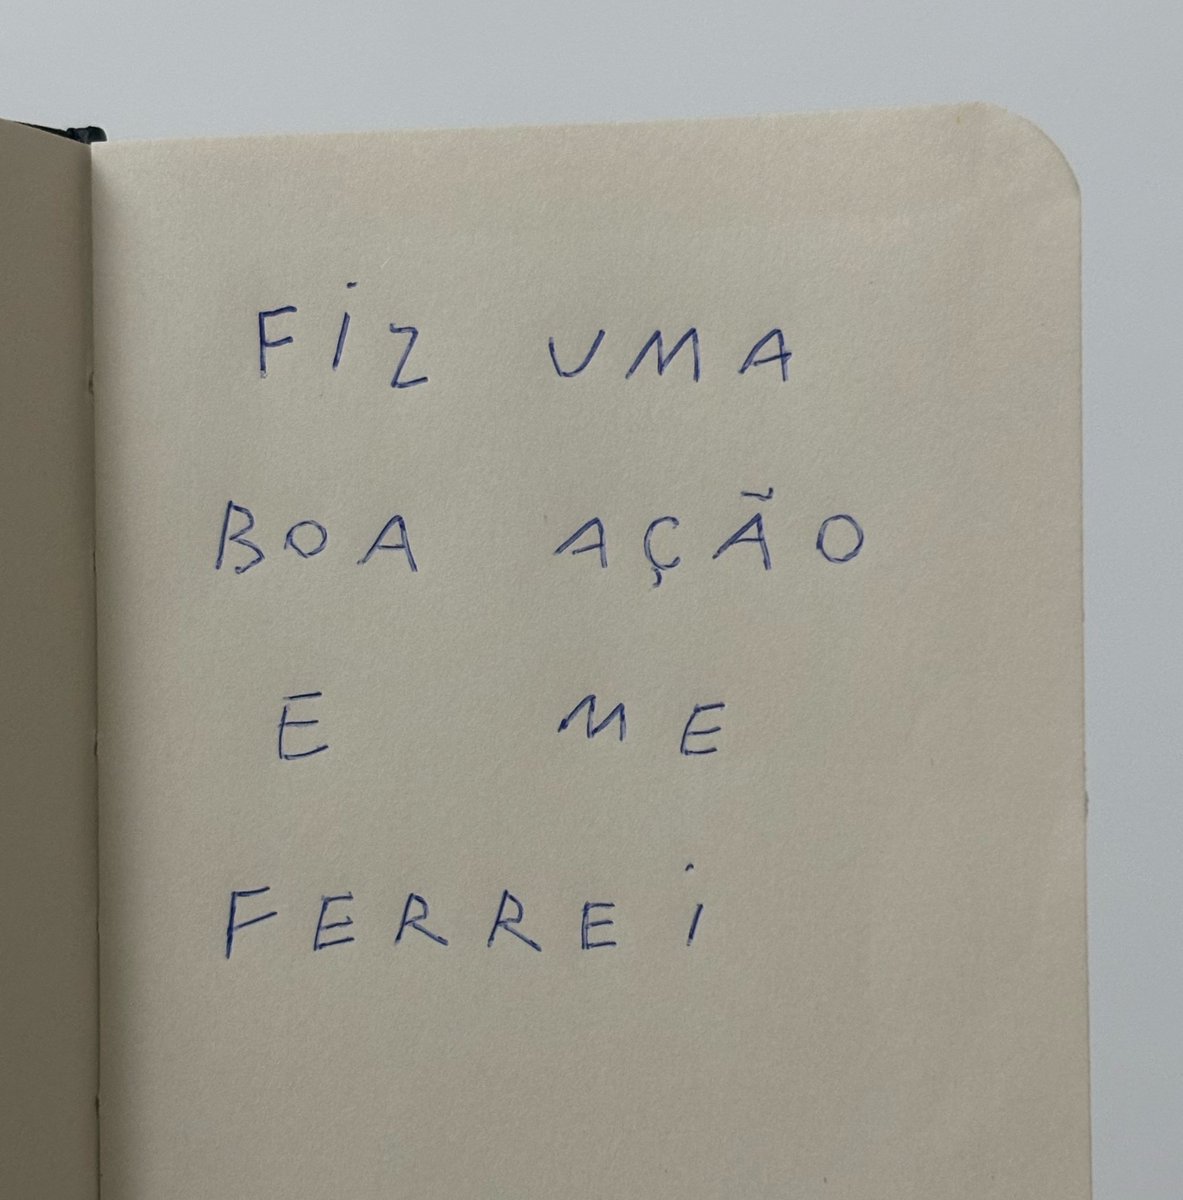 FiZ UMA
BOA AÇÃO
E ME
FERREi